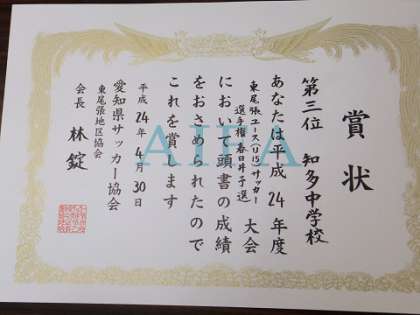 賞状
第三位 知多中学校
あなたは平成24年度
東尾張ユース(U15)サッカー
選手権 春日井予選 大会
において頭書の成績
をおさめられたので
これを賞します
平成24年4月30日
愛知県サッカー協会
東尾張地区協会
会長 林錠
AIFA